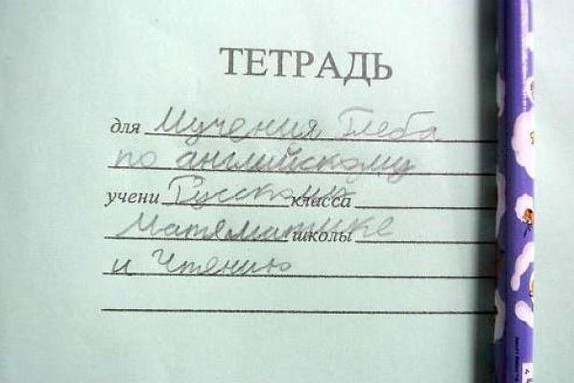 ТЕТРАДЬ
для Мучения Глеба
по английскому
учени Русскому класса
Матяматике школы
и Чтению